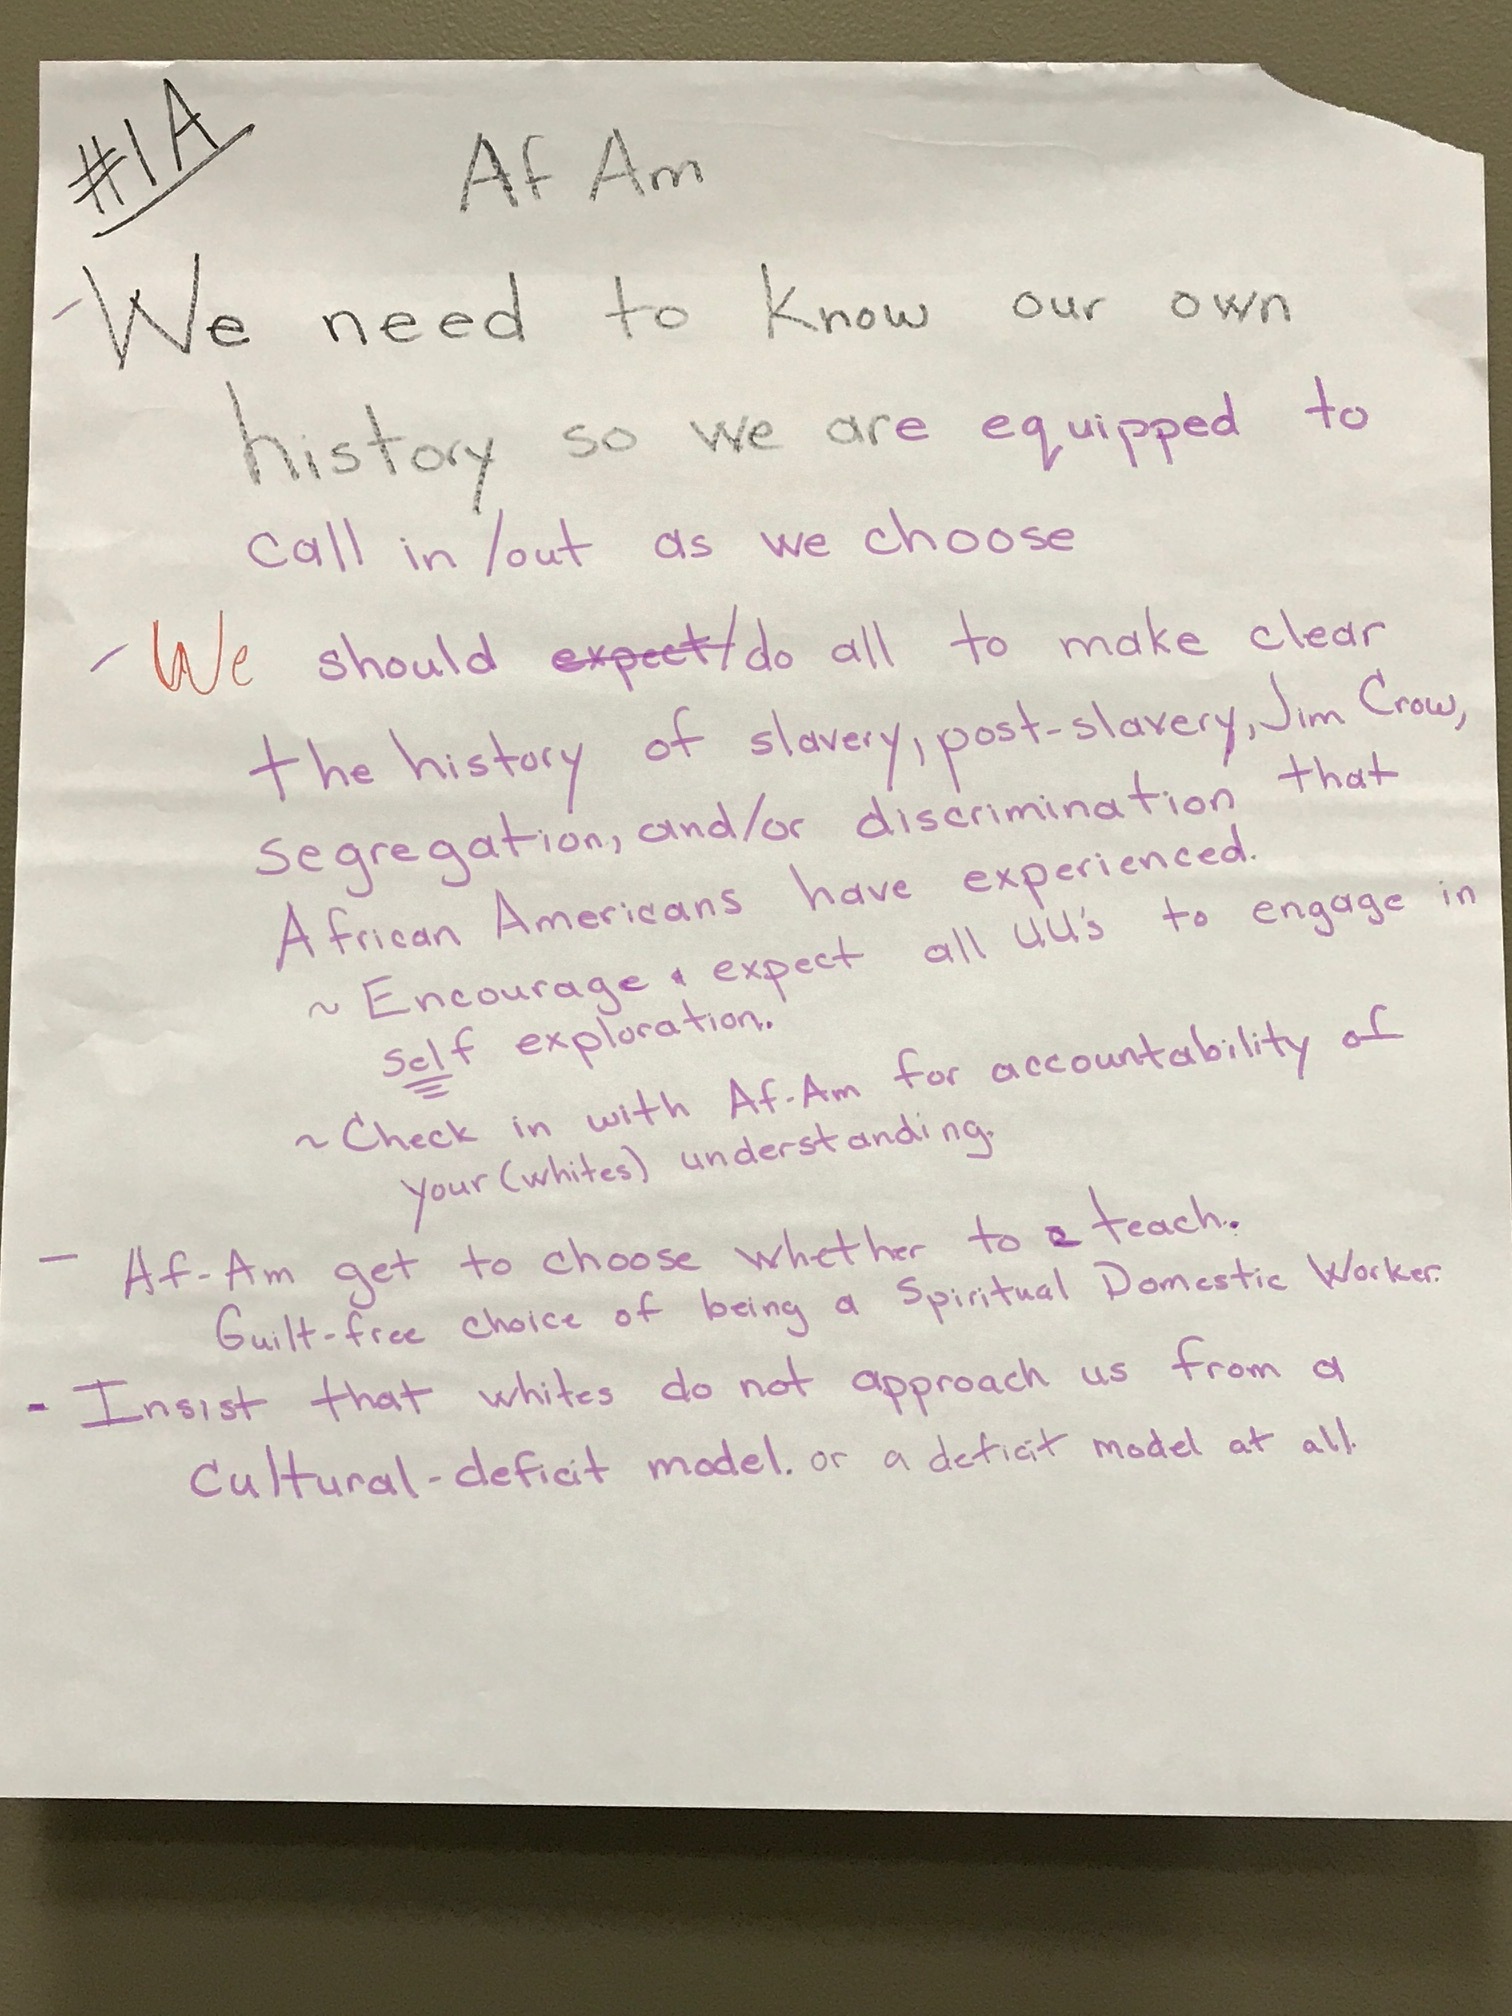 #1A
Af Am
- We need to know our own
history so we are equipped to
call in/out as we choose
- We should expect/do all to make clear
the history of slavery, post-slavery, Jim Crow,
segregation, and/or discrimination that
African Americans have experienced.
~ Encourage & expect all UU's to engage in
self exploration.
~ Check in with Af-Am for accountability of
your (whites) understanding.
- Af-Am get to choose whether to teach.
Guilt-free choice of being a Spiritual Domestic Worker.
- Insist that whites do not approach us from a
cultural-deficit model. or a deficit model at all.